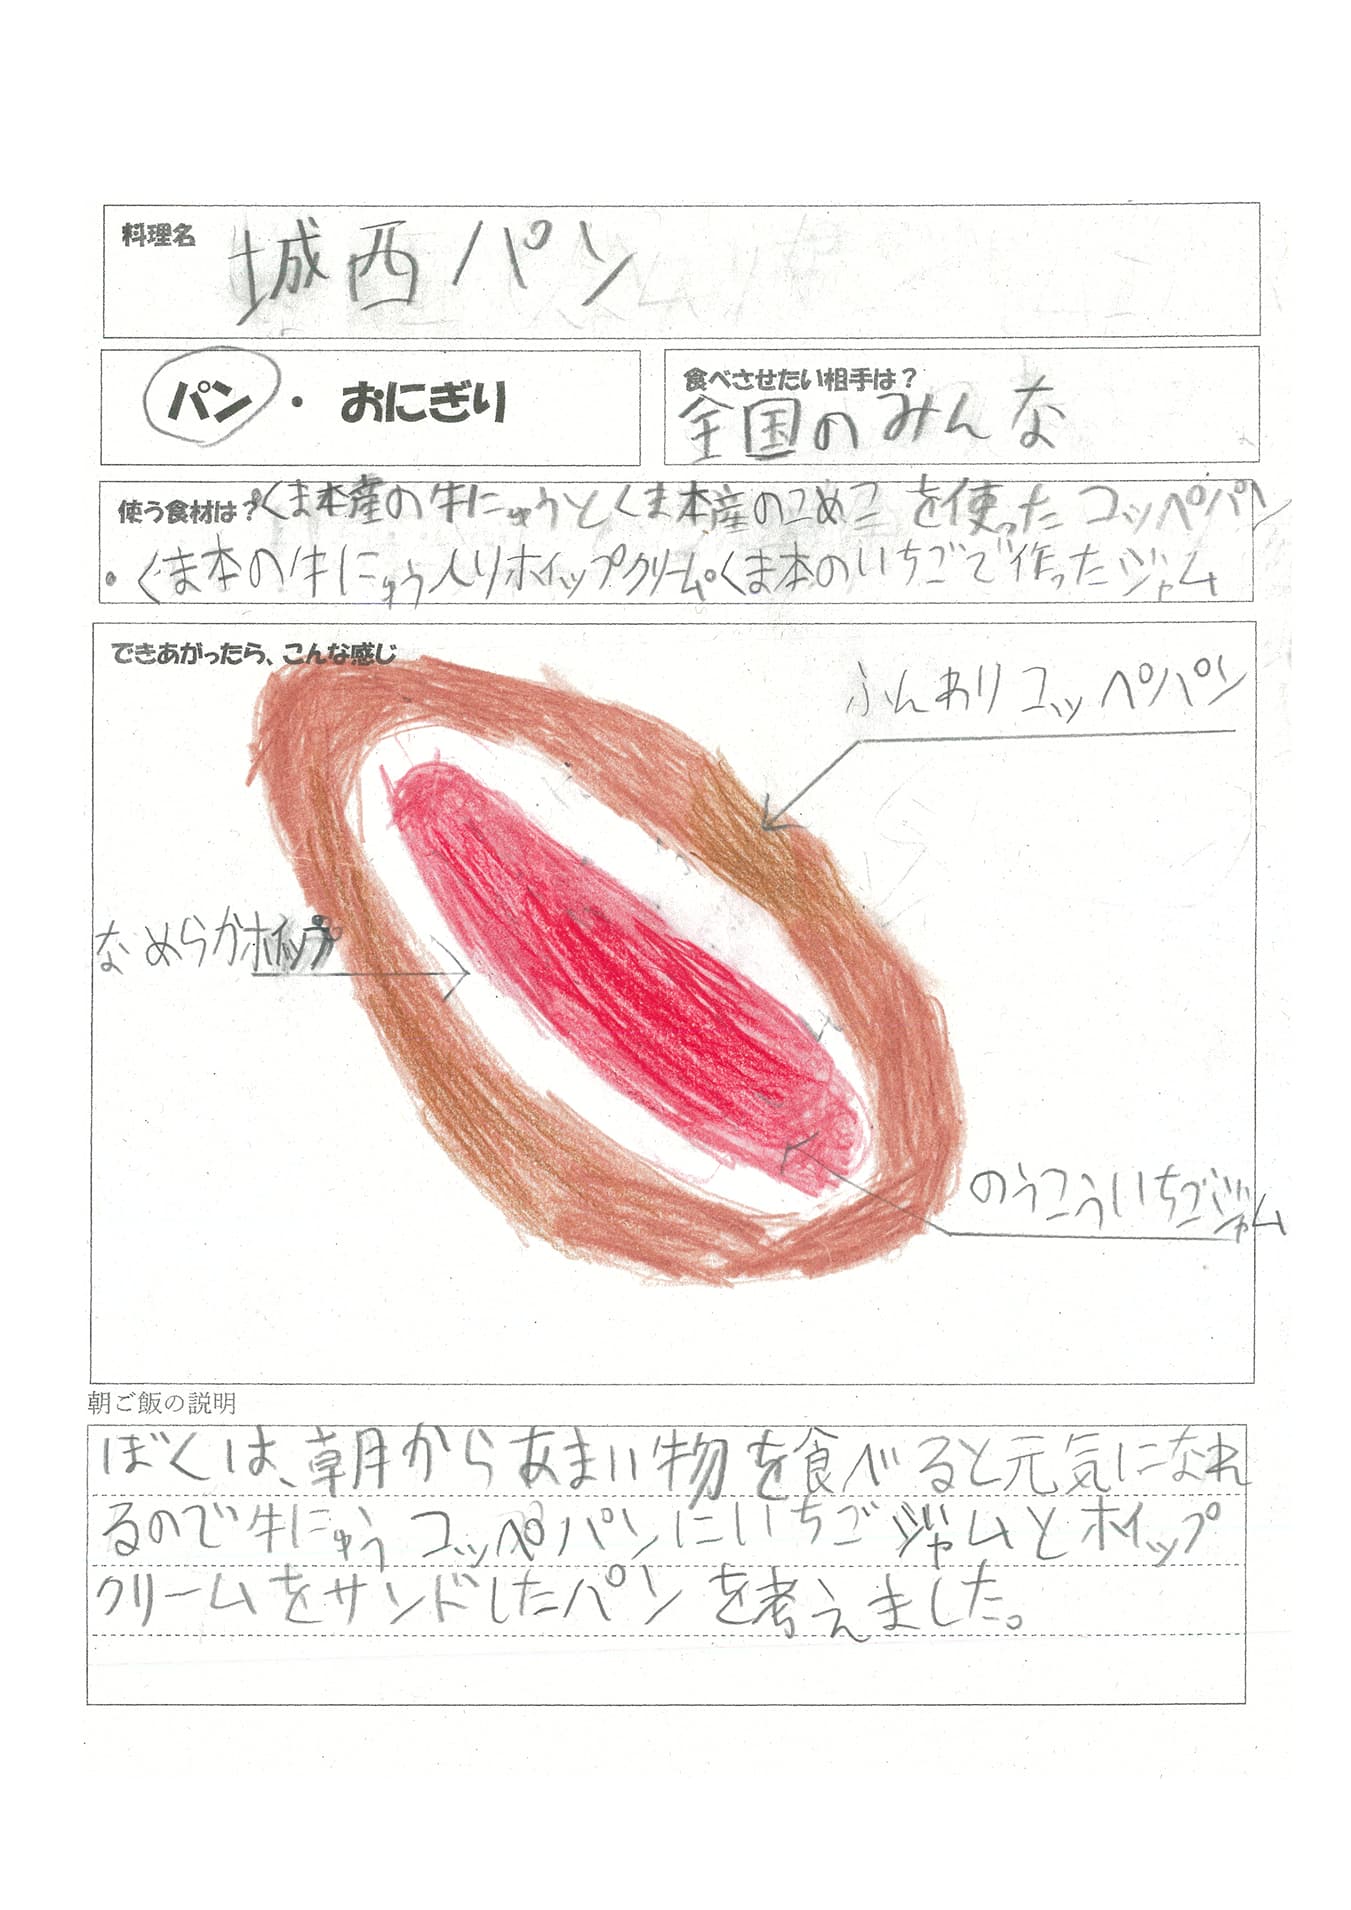 料理名
城西パン
パン・おにぎり
食べさせたい相手は？
全国のみんな
使う食材は？くま本産の牛にゅうとくま本産のこめこを使ったコッペパン
・くま本の牛にゅう入りホイップクリーム・くま本のいちごで作ったジャム
できあがったら、こんな感じ
ふんわりコッペパン
なめらかホイップ
のうこういちごジャム
朝ご飯の説明
ぼくは、朝からあまい物を食べると元気になれ
るので牛にゅうコッペパンにいちごジャムとホイップ
クリームをサンドしたパンを考えました。